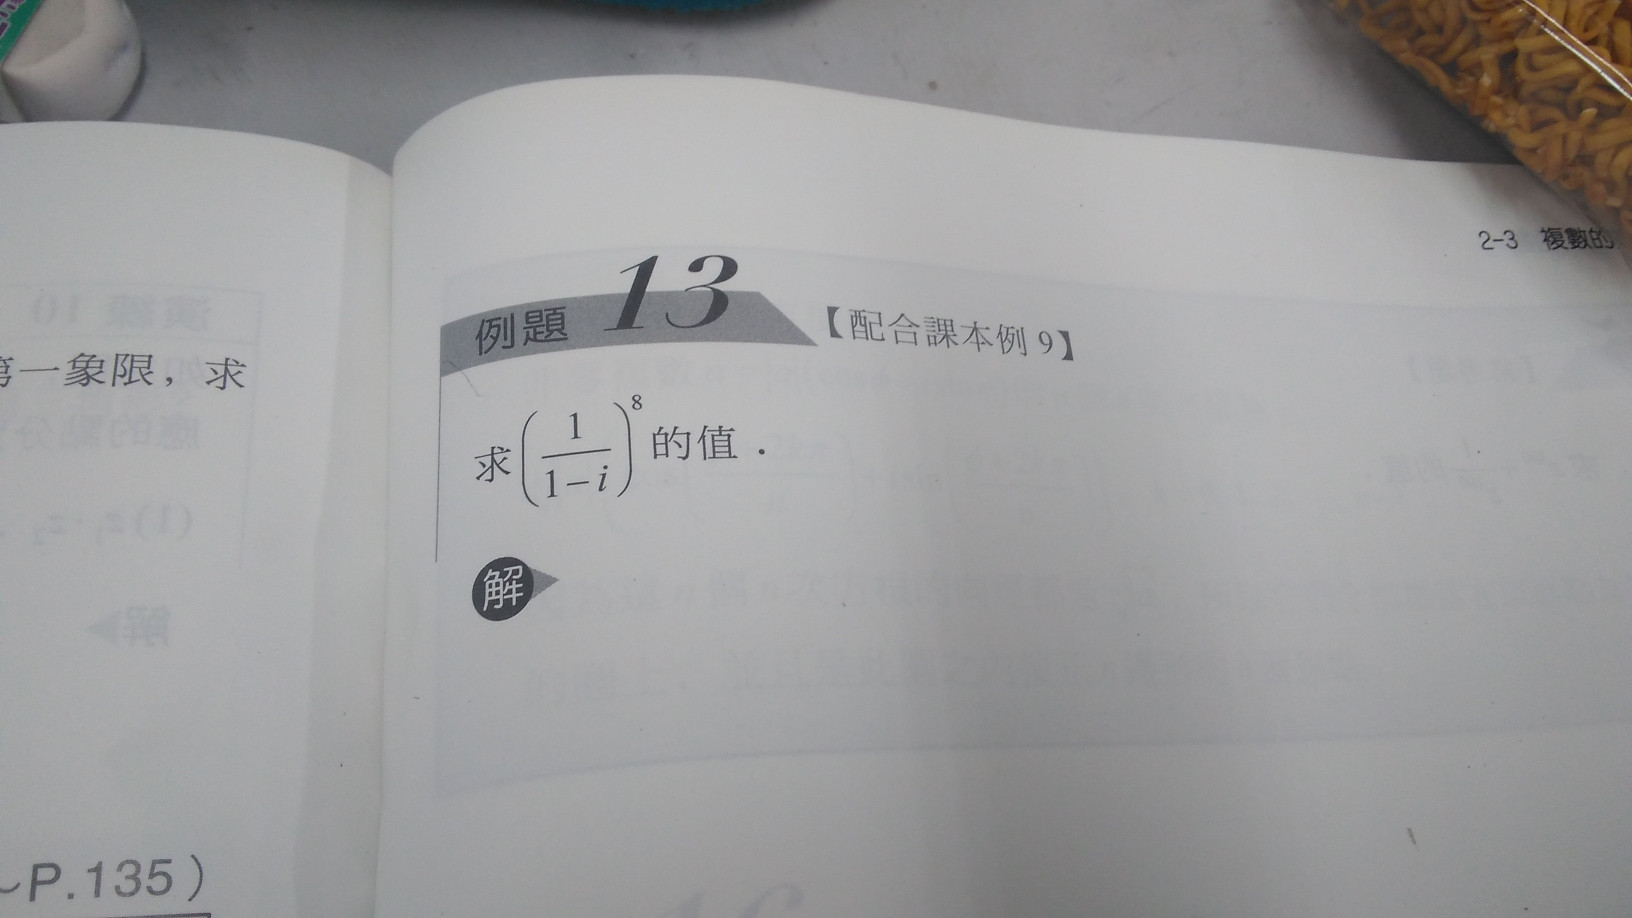 第一象限，求
~P.135）
2-3 複數的
例題 13 【配合課本例 9】
求(1/(1-i))^8 的值．
解